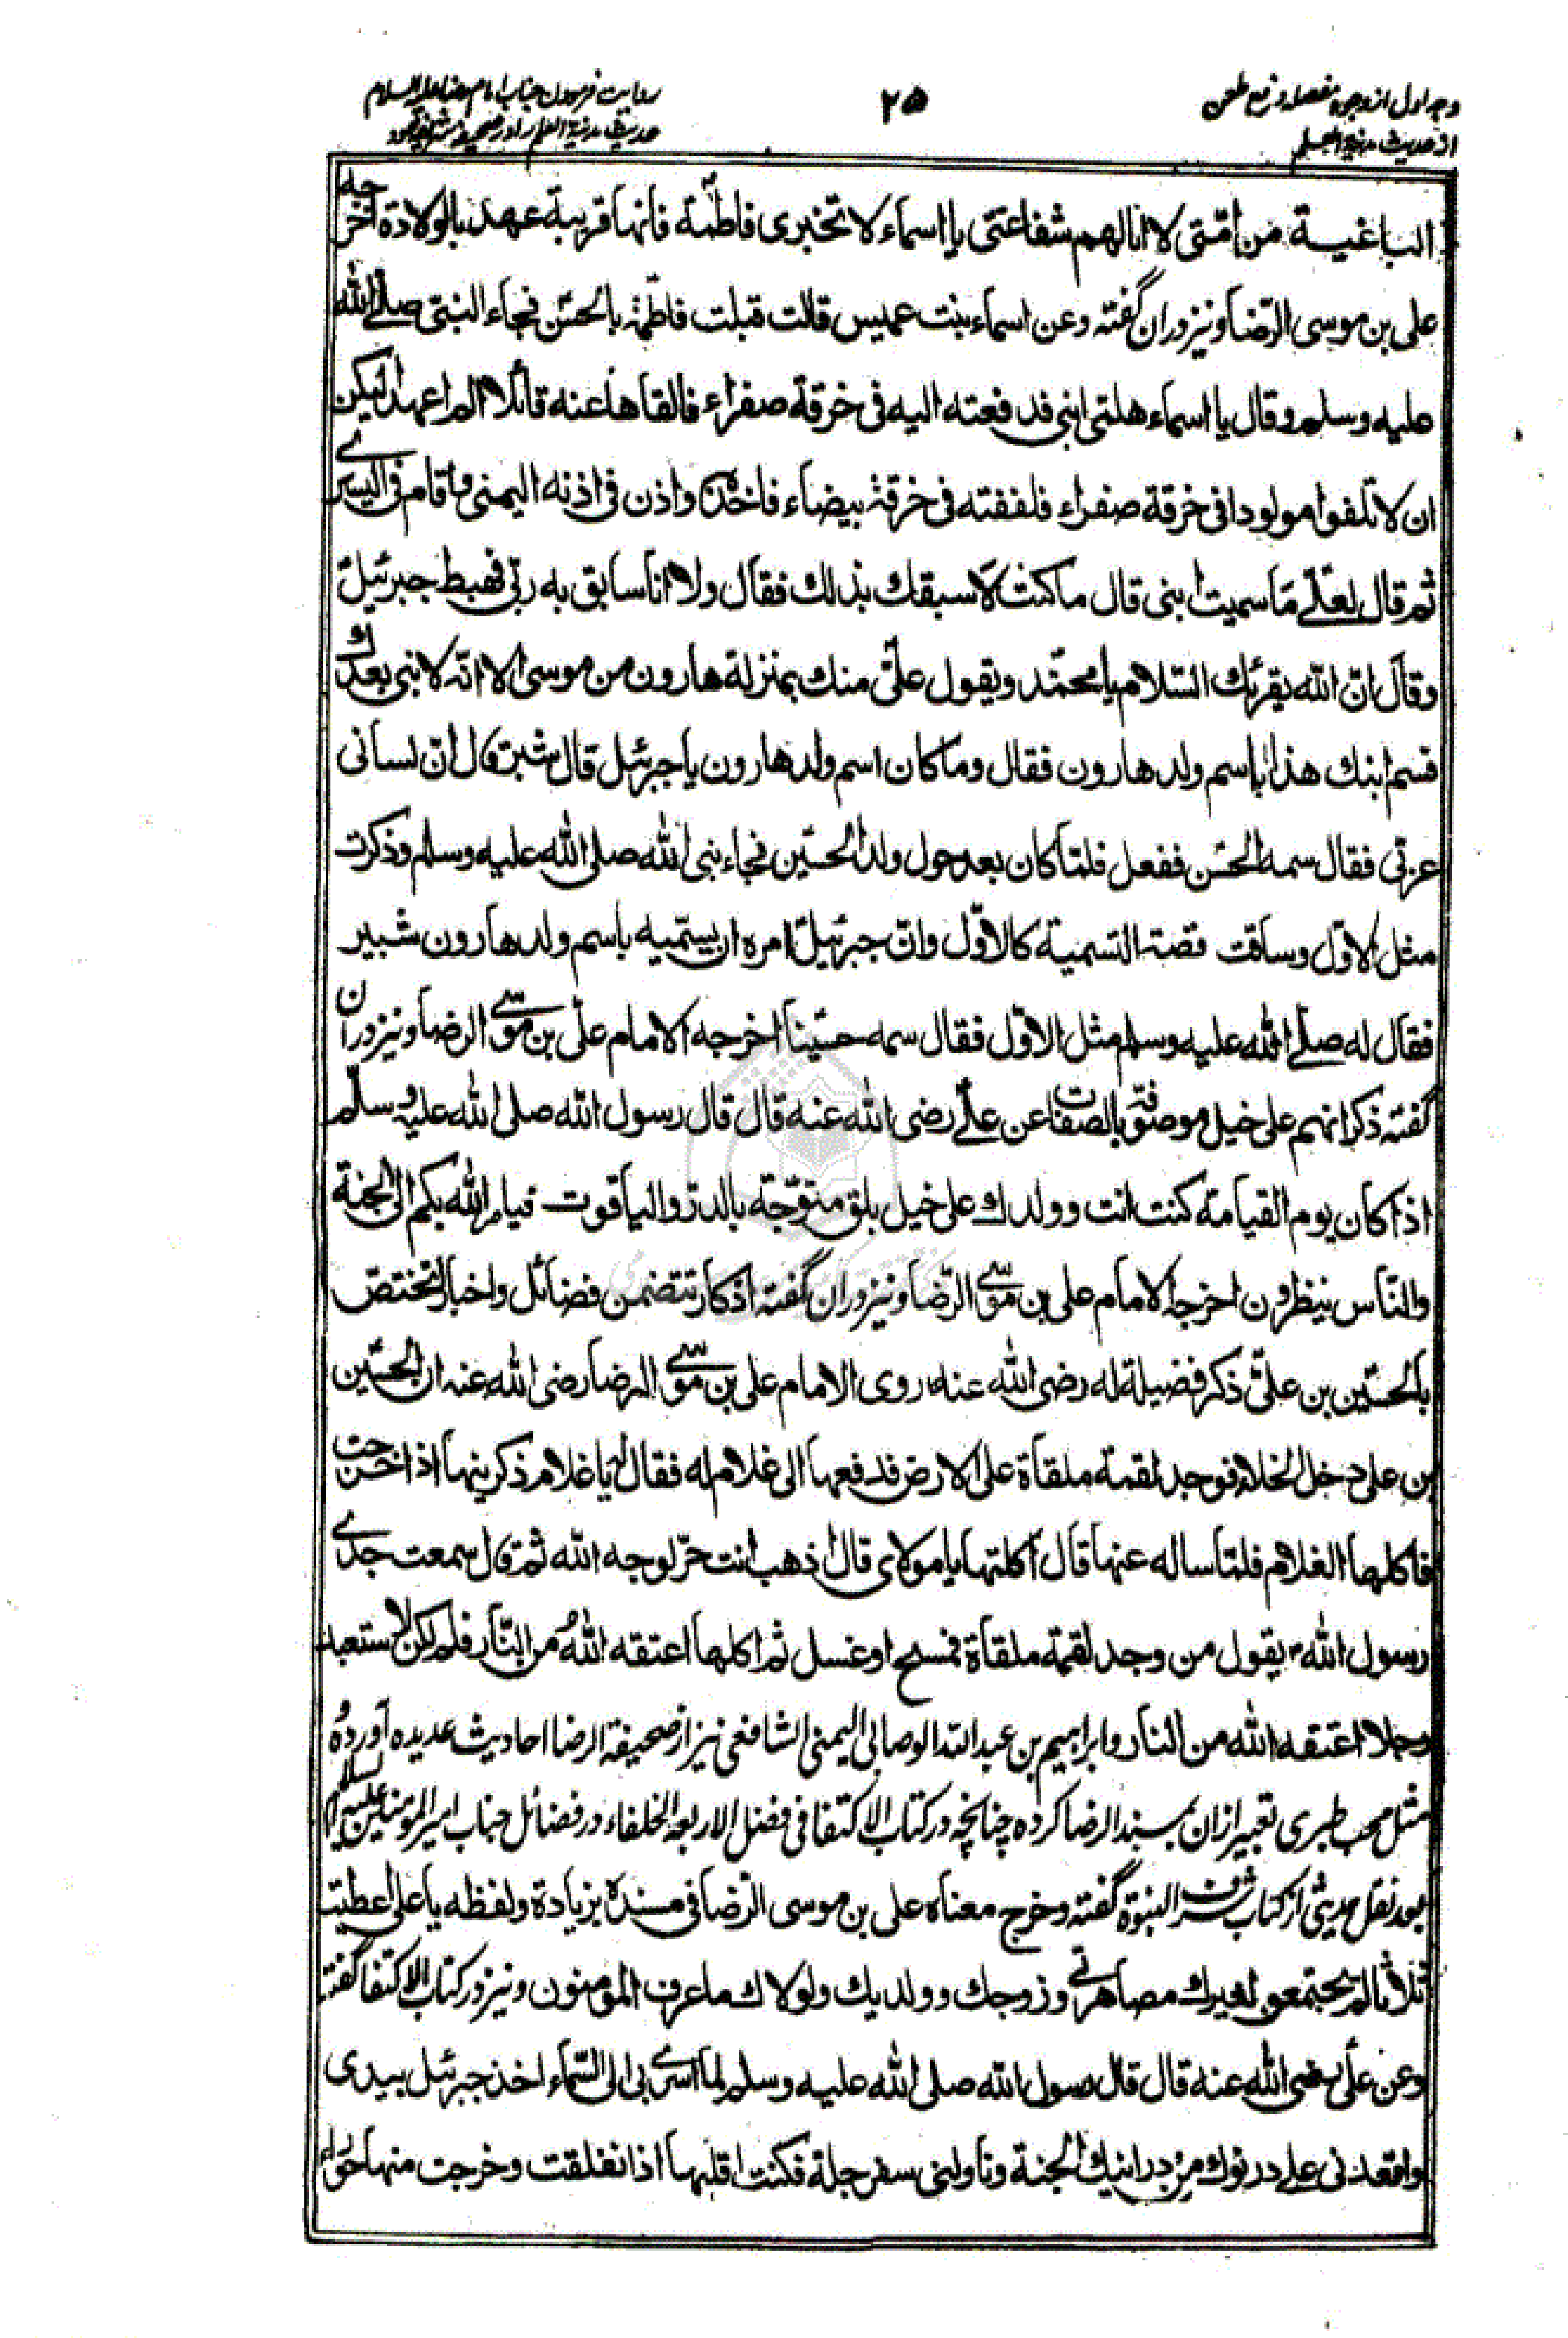 وجه اول از وجوه مفصله در رفع طعن
از حدیث مدینة العلم
٢٥
روایت فرمودن جناب امام رضا علیه السلام
حدیث مدینة العلم را در صحیفه شریفه خود
الباغية من امّتي لا انالهم شفاعتى يا اسماء لا تخبرى فاطمة فانها قريبة عهد بالولادة اخرجه
على بن موسى الرّضا و نیز دران گفته وعن اسماء بنت عميس قالت قبلت فاطمة بالحسن فجاء النبىّ صلى الله
عليه وسلم وقال يا اسماء هلمّى ابنى فدفعته اليه فى خرقة صفراء فالقاها عنه قائلا الم اعهد اليكن
ان لا تلفوا مولودا فى خرقة صفراء فلففته فى خرقة بيضاء فاخذه واذن فى اذنه اليمنى واقام فى اليسرى
ثم قال لعلىّ ما سميت ابنى قال ما كنت لاسبقك بذلك فقال ولا انا سابق به ربّى فهبط جبرئيل
وقال انّ الله يقرئك السّلام يا محمّد ويقول علىّ منك بمنزلة هارون من موسى الا انّه لا نبى بعدك
فسم ابنك هذا باسم ولد هارون فقال وما كان اسم ولد هارون يا جبرئيل قال شبر قال انّ لسانى
عربّى فقال سمه الحسن ففعل فلمّا كان بعد حول ولد الحسين فجاء نبى الله صلى الله عليه وسلم وذكرت
مثل الاوّل وساقت قصة التسمية كالاوّل وانّ جبرئيل امره ان يسمّيه باسم ولد هارون شبير
فقال له صلى الله عليه وسلم مثل الاوّل فقال سمه حسينا اخرجه الامام علىّ بن موسى الرضا و نیز دران
گفته ذكر انهم على خيل موصوفة بالصفات عن علىّ رضى الله عنه قال قال رسول الله صلى الله عليه وسلّم
اذا كان يوم القيامة كنت انت وولدك على خيل بلق متوّجة بالدرّ والياقوت فيامر الله بكم الى الجنة
والنّاس ينظرون اخرجه الامام على بن موسى الرّضا و نیز دران گفته اذكار تتضمن فضائل واخبار تختصّ
بالحسين بن علىّ ذكر فضيلة له رضى الله عنه روى الامام على بن موسى الرضا رضى الله عنه ان الحسين
بن على دخل الخلاء فوجد لقمة ملقاة على الارض فدفعها الى غلام له فقال يا غلام ذكرينها اذا خرجت
فاكلها الغلام فلمّا ساله عنها قال اكلتها يا مولاى قال اذهب انت حرّ لوجه الله ثم قال سمعت جدى
رسول الله يقول من وجد لقمة ملقاة فمسح او غسل ثم اكلها اعتقه الله من النّار فلم اكن لاستعبد
رجلا اعتقه الله من النار و ابراهیم بن عبد الله الوصابی الیمنی الشافعی نیز از صحیفة الرضا احادیث عدیده آورده و
مثل محب طبری تعبیر ازان بمسند الرضا کرده چنانچه در کتاب الاکتفا فی فضل الاربعة الخلفاء در فضائل جناب امیر المؤمنین علیه السلام
بعد نقل حدیثی از کتاب شرف النبوة گفته وخرج معناه على بن موسى الرّضا فى مسنده بزيادة ولفظه يا على اعطيت
ثلاثا لم يجتمعن لغيرك مصاهرتى وزوجك وولديك ولولاك ما عرف المؤمنون و نیز در کتاب الاکتفا گفته
وعن علىّ رضى الله عنه قال قال رسول الله صلى الله عليه وسلم لما اسرى بى الى السّماء اخذ جبرئيل بيدى
واقعدنى على درنوك من درانيك الجنة وناولنى سفرجلة فكنت اقلبها اذا انفلقت وخرجت منها حوراء